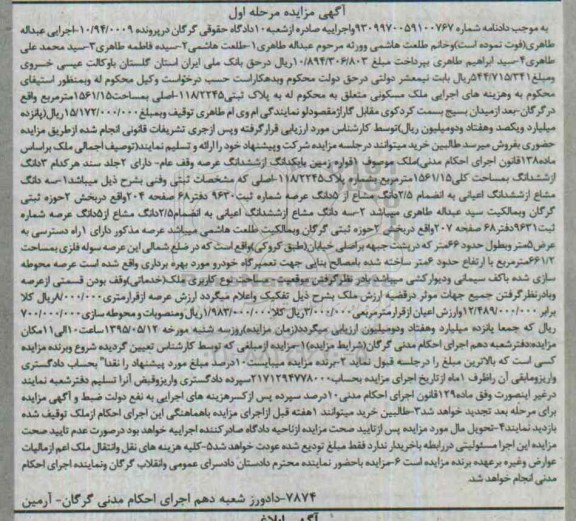 آگهی مزایده مرحله اول
به موجب دادنامه شماره ۹۳۰۹۹۷۰۰۵۹۱۰۰۷۶۷ واجراییه صادره ازشعبه ۱۰دادگاه حقوقی گرگان درپرونده ۱۰/۹۴/۰۰۰۹-اجرایی عبداله
طاهری(فوت نموده است)وخانم طلعت هاشمی وورثه مرحوم عبداله طاهری۱-طلعت هاشمی۲-سیده فاطمه طاهری۳-سید محمد علی
طاهری۴-سید ابراهیم طاهری بپرداخت مبلغ ۱۰/۸۹۴/۳۰۶/۸۰۳ریال درحق بانک ملی ایران استان گلستان باوکالت عیسی خسروی
ومبلغ۵۴۴/۷۱۵/۳۴۱ریال بابت نیمعشر دولتی درحق دولت محکوم وبدهکاراست حسب درخواست وکیل محکوم له وبمنظور استیفای
محکوم به وهزینه های اجرایی ملک مسکونی متعلق به محکوم له به پلاک ثبتی۱۱۸/۲۲۴۵-اصلی بمساحت۱۵۶۱/۱۵مترمربع واقع
درگرگان-بعد ازمیدان بسیج بسمت کردکوی مقابل گازا‌مقصودلو نمایندگی ام وی ام طاهری توقیف وبمبلغ ۱۵/۱۷۲/۰۰۰/۰۰۰ریال(پانزده
میلیارد ویکصد وهفتاد ودومیلیون ریال)توسط کارشناس مورد ارزیابی قرارگرفته وپس ازجری تشریفات قانونی انجام شده ازطریق مزایده
حضوری بفروش میرسد طالبین خرید میتوانند درجلسه مزایده شرکت وپیشنهاد خود را ارائه و تسلیم نمایند(توصیف اجمالی ملک براساس
ماده۱۳۸قانون اجرای احکام مدنی)ملک موصوف ۱قواره زمین بایکدانگ ازششدانگ عرصه وقف عام- دارای ۲جلد سند هرکدام ۳دانگ
ازششدانگ بمساحت کلی۱۵۶۱/۱۵مترمربع بشماره پلاک۱۱۸/۲۲۴۵-اصلی که مشخصات ثبتی وفنی بشرح ذیل میباشد۱-سه دانگ
مشاع ازششدانگ اعیانی به انضمام ۲/۵دانگ مشاع از ۵دانگ عرصه شماره ثبت۹۶۳۰ دفتر۶۸ صفحه ۲۰۴واقع دربخش ۲حوزه ثبتی
گرگان وبمالکیت سید عبداله طاهری میباشد ۲-سه دانگ مشاع ازششدانگ اعیانی به انضمام۲/۵دانگ مشاع از۵دانگ عرصه شماره
ثبت۹۶۳۱دفتر۶۸ صفحه ۲۰۷واقع دربخش ۲حوزه ثبتی گرگان وبمالکیت طلعت هاشمی میباشد عرصه مذکور دارای ۱راه دسترسی به
عرض۵متر وبطول حدود ۶۶متر که درپشت جبهه براصلی خیابان(طبق کروکی)واقع است که در ضلع شمالی این عرصه سوله فلزی بمساحت
۶۶۱/۲مترمربع با ارتفاع حدود ۶متر ساخته شده بامصالح بنایی جهت تعمیرگاه خودرو مورد بهره برداری واقع شده است عرصه محوطه
سازی شده باکف سیمانی ودیوارکشی میباشد بادر نظرگرفتن موقعیت ومساحت نوع کاربری ملک(خدماتی)وقف بودن قسمتی ازعرصه
وبادرنظرگرفتن جمیع جهات موثر درقضیه ارزش ملک بشرح ذیل تفکیک واعلام میگردد ارزش عرصه ازقرارمتری۸/۰۰۰/۰۰۰ریال کلا
برابر ۱۲/۴۸۹/۰۰۰/۰۰۰وارزش اعیان ازقرارمترمربعی ۳/۰۰۰/۰۰۰ریال کلا۱/۹۸۳/۰۰۰/۰۰۰ریال ومنصوبات و محوطه سازی ۷۰۰/۰۰۰/۰۰۰
ریال که جمعا پانزده میلیارد وهفتاد ودومیلیون ارزیابی میگردد(زمان مزایده)روزسه شنبه مورخه ۱۳۹۵/۰۵/۱۲ساعت۱۰الی۱۱مکان
مزایده:دفترشعبه دهم اجرای احکام مدنی گرگان(شرایط مزایده)۱-مزایده ازمبلغی که توسط کارشناس تعیین گردیده شروع وبرنده مزایده
کسی است که بالاترین مبلغ را درجلسه قبول نماید ۲-برنده مزایده میبایست۱۰درصد مبلغ مورد پیشنهاد را نقدا" بحساب دادگستری
واریزومابقی آن راظرف ۱ماه ازتاریخ اجرای مزایده بحساب۲۱۷۱۲۹۴۷۷۸۰۰۰سپرده دادگستری واریزوقبض آنرا تسلیم دفترشعبه نمایند
درغیر اینصورت وفق ماده۱۲۹قانون اجرای احکام مدنی۱۰درصد سپرده پس ازکسرهزینه های اجرایی به نفع دولت ضبط و آگهی مزایده
برای مرحله بعد تجدید خواهد شد۳-طالبین خرید میتوانند ۱هفته قبل ازاجرای مزایده باهماهنگی این اجرای احکام ازملک توقیف شده
بازدید نمایند۴-تحویل مال مورد مزایده پس ازتایید صحت مزایده ازناحیه دادگاه صادرکننده اجراییه خواهد بود درصورت عدم تایید صحت
مزایده این اجرا مسئولیتی دررابطه باخریدار ندارد فقط مبلغ تودیع شده عودت خواهد شد۵-کلیه هزینه های نقل وانتقال ملک اعم ازمالیات
عوارض وغیره برعهده برنده مزایده است ۶-مزایده باحضور نماینده محترم دادستان دادسرای عمومی وانقلاب گرگان ونماینده اجرای احکام
مدنی انجام خواهد شد.
۷۸۷۴-دادورز شعبه دهم اجرای احکام مدنی گرگان- آرمین